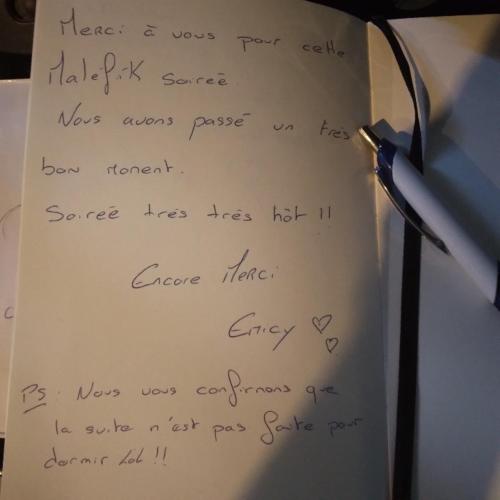 Merci à vous pour cette
Maléfik Soireé.
Nous avons passé un très
bon moment.
Soireé très très hôt !!
Encore Merci
Emicy ♡♡
PS : Nous vous confirmons que
la suite n'est pas faite pour
dormir Lol !!